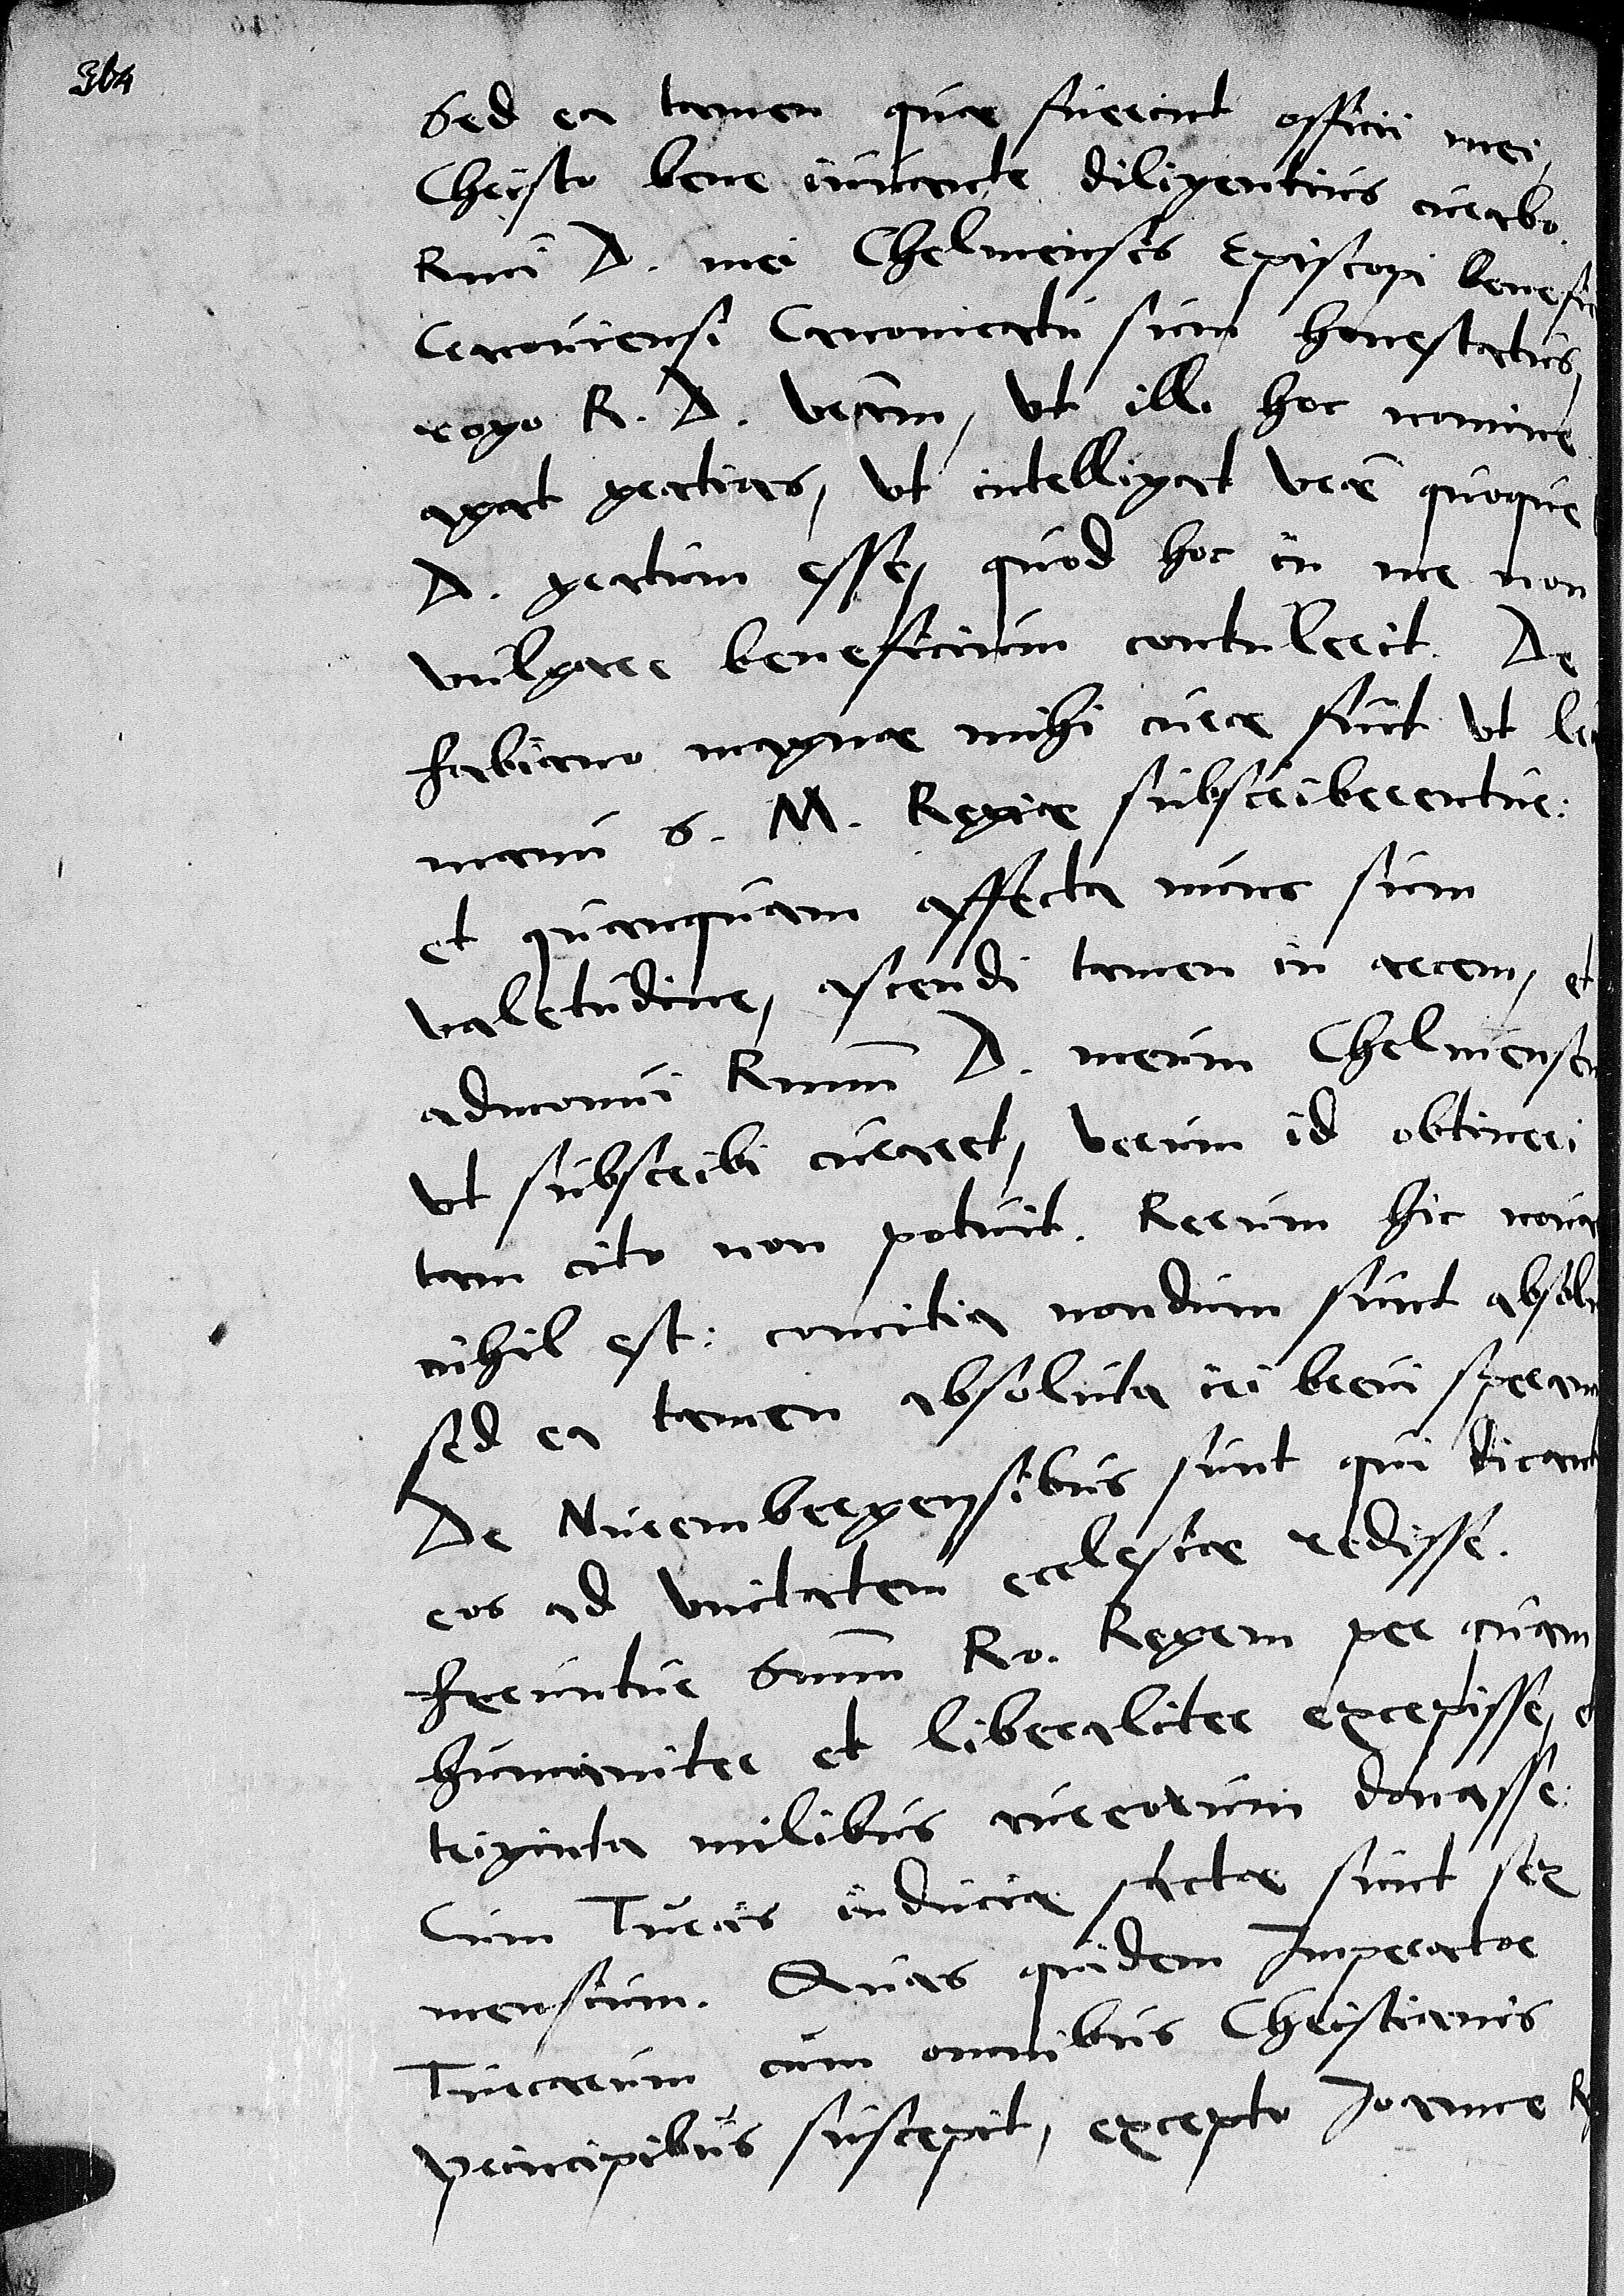 364
Sed ea tamen quae fuerint officii mei,
Christo bene iuuante diligentius curabo.
Rmi D. mei Chelmensis Episcopi benefi
Cracouiensi Canonicatu sum honestatus,
rogo R. D. vram, vt illi hoc nomine
agat gratias, vt intelligat vrae quoque
D. gratum esse, quod hoc in me non
vulgare beneficium contulerit. De
Fabiano magnae mihi curae fuit vt
manu S. M. Regiae subscriberentur:
et quanquam affecta nunc sum
valetudine, ascendi tamen in arcem, et
admonui Rmum D. meum Chelmensem
vt subscribi curaret, verum id obtineri
tam cito non potuit. Rerum hic noua
nihil est: comitia nondum sunt absolu
sed ea tamen absoluta iri breui speram
De Nurembergensibus sunt qui dicant
eos ad vnitatem ecclesiae redisse.
Feruntur Smum Ro. Regem per quam
humaniter et liberaliter excepisse, et
triginta milibus aureorum donasse:
Cum Turcis induciae factae sunt sex
mensium. Quas quidem Imperator
Turcarum cum omnibus Christianis
principibus suscepit, excepto Joanne